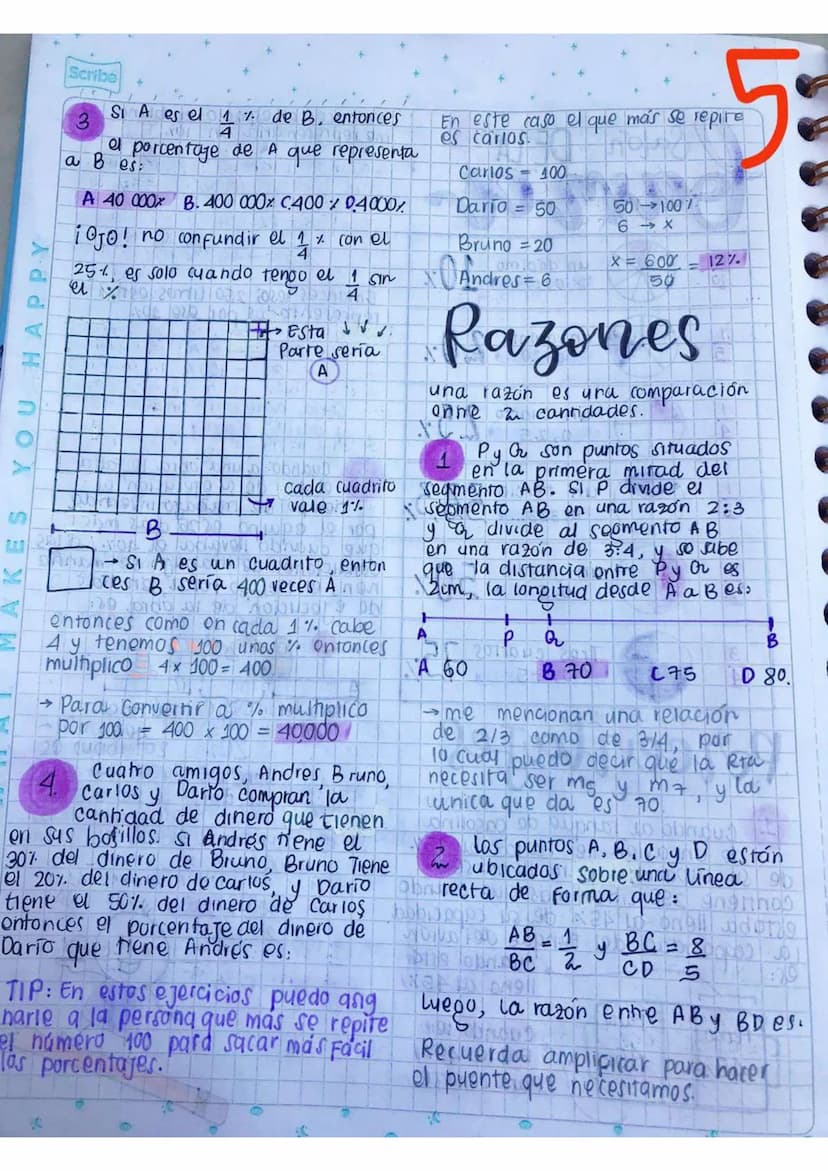 5
Scribe
WHAT MAKES YOU HAPPY
3 Si A es el 1/4 % de B. entonces
el porcentaje de A que representa
a B es:
A 40 000% B. 400 000% C.400 % D.4000%
¡OJO! no confundir el 1/4 % con el
25%, es solo cuando tengo el 1/4 sin
el %
→ Esta ↓ ↓ ↙
Parte sería
A
cada cuadrito
vale 1%
B
→ Si A es un cuadrito, enton
ces B sería 400 veces A
entonces como en cada 1% cabe
4 y tenemos 100 unos % entonces
multiplico 4 x 100 = 400
→ Para convertir a % multiplico
por 100 = 400 x 100 = 40,000
4. Cuatro amigos, Andres Bruno,
Carlos y Darío compran la
cantidad de dinero que tienen
en sus bolsillos. Si Andrés tiene el
30% del dinero de Bruno, Bruno Tiene
el 20% del dinero de Carlos, y Darío
tiene el 50% del dinero de Carlos
entonces el porcentaje del dinero de
Darío que tiene Andrés es:
TIP: En estos ejercicios puedo asig
narle a la persona que mas se repite
el número 100 para sacar más Fácil
los porcentajes.
En este caso el que más se repite
es carlos.
Carlos = 100
Darío = 50 50 → 100%
6 → x
Bruno = 20
x = 600/50 = 12%
Andres = 6
Razones
una razón es una comparación
entre 2 cantidades.
1 P y Q son puntos situados
en la primera mitad del
segmento AB. Si P divide el
segmento AB en una razón 2:3
y Q divide al segmento AB
en una razón de 3:4, y se sabe
que la distancia entre P y Q es
2cm, la longitud desde A a B es:
A P Q B
A 60 B 70 C 75 D 80.
→ me mencionan una relación
de 2/3 como de 3/4, por
lo cual puedo decir que la Rta
necesita ser m5 y m7, y la
unica que da es 70
2 Los puntos A, B, C y D están
ubicados sobre una línea
recta de forma que:
AB/BC = 1/2 y BC/CD = 8/5
Luego, la razón entre AB y BD es.
Recuerda amplificar para hacer
el puente que necesitamos.